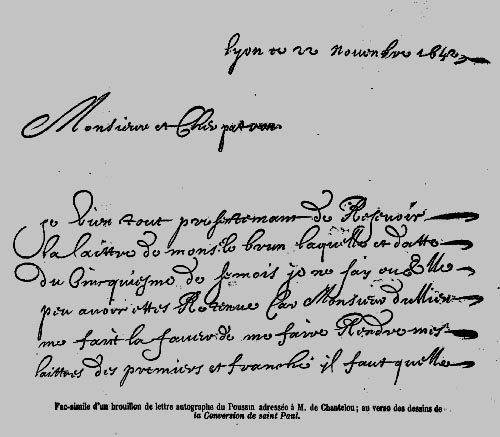 Lyon ce 22 Novenbre 1642
Monsieur et Cher patron
Je vien tout presentemant de Resevoir
la laittre de mons.r le brun laquelle et datte
du Cincquiesme de semois je ne say ou Elle
peu avoir ettes Retenue Car Monsieur dullieu
me fait la faveur de me faire Rendre mes
laittres des premiers et franche il faut quelle
Fac-simile d'un brouillon de lettre autographe du Poussin adressée à M. de Chantelou; au verso des dessins de
la Conversion de saint Paul.